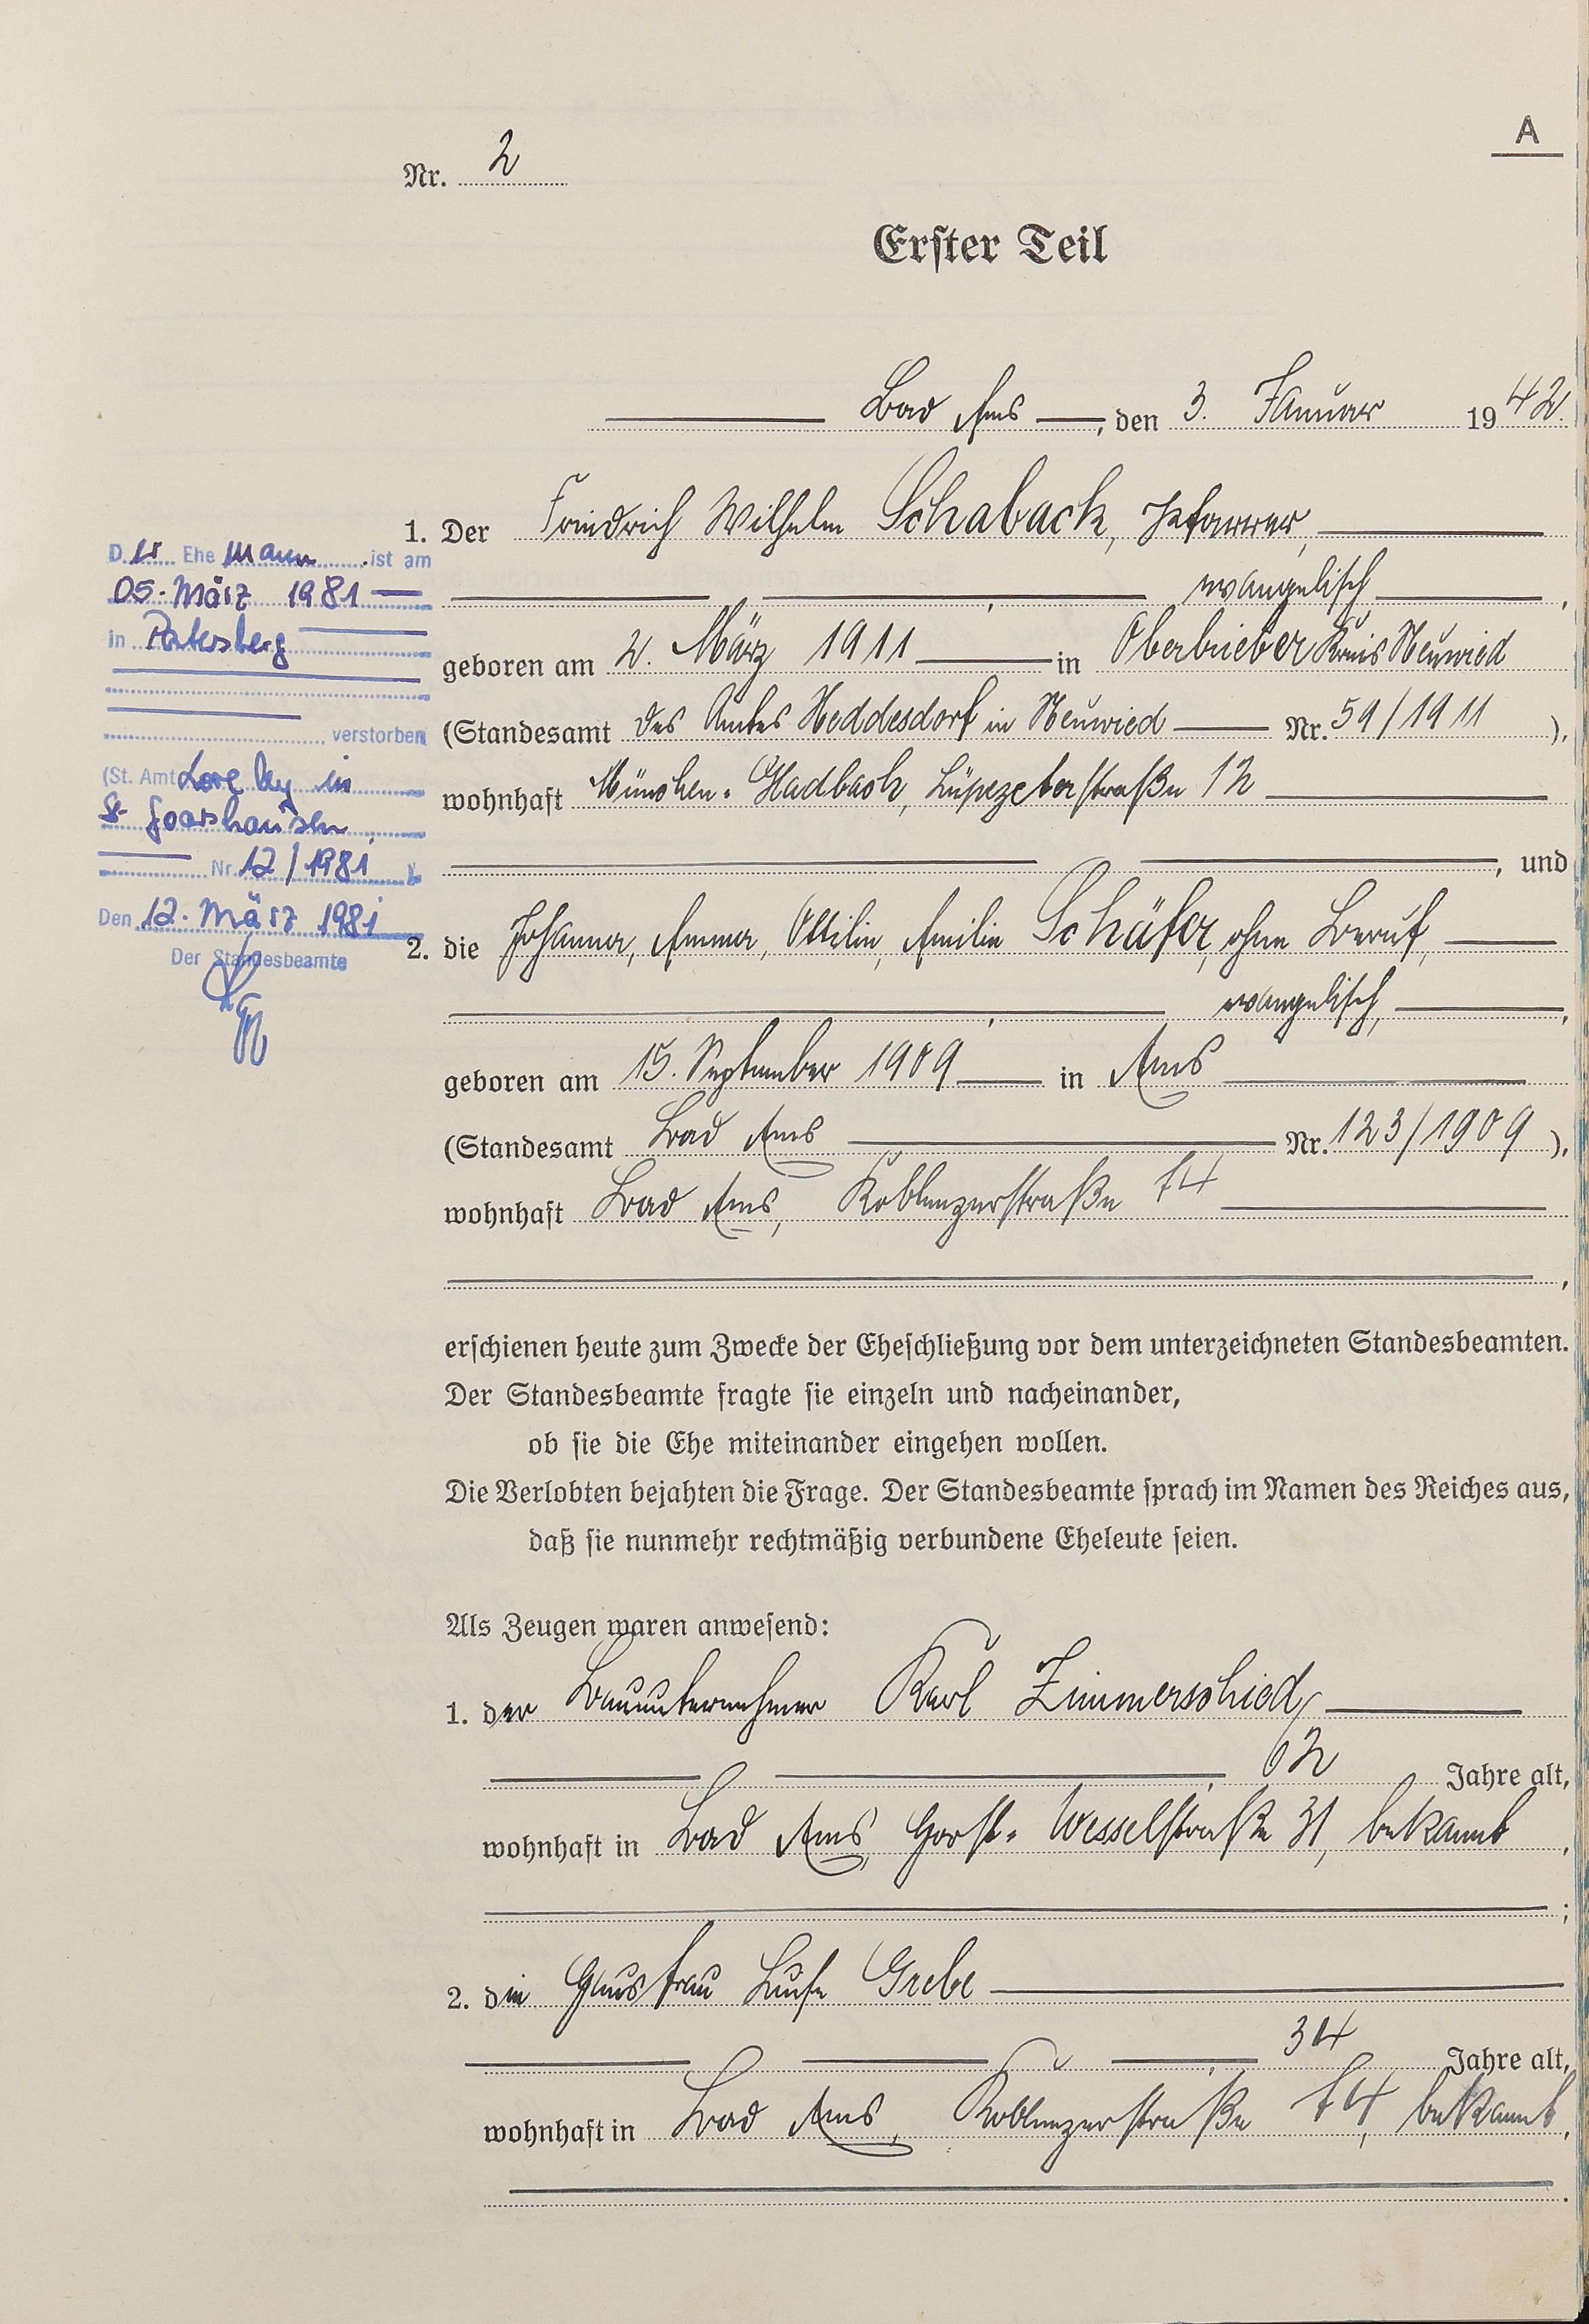 A
Nr. 2
Erster Teil
Bad Ems, den 3. Januar 1942.
1. Der Friedrich Wilhelm Schaback, Pfarrer,
evangelisch,
geboren am 2. März 1911 in Oberbieber Kreis Neuwied
(Standesamt des Amtes Heddesdorf in Neuwied Nr. 59/1911),
wohnhaft München-Gladbach, Lüpezeterstraße 12
, und
2. die Johanna, Emma, Ottilie, Emilie Schäfer, ohne Beruf,
evangelisch,
geboren am 15. September 1909 in Ems
(Standesamt Bad Ems Nr. 123/1909),
wohnhaft Bad Ems, Koblenzerstraße
erschienen heute zum Zwecke der Eheschließung vor dem unterzeichneten Standesbeamten.
Der Standesbeamte fragte sie einzeln und nacheinander,
ob sie die Ehe miteinander eingehen wollen.
Die Verlobten bejahten die Frage. Der Standesbeamte sprach im Namen des Reiches aus,
daß sie nunmehr rechtmäßig verbundene Eheleute seien.
Als Zeugen waren anwesend:
1. der Bauunternehmer Karl Zimmerschied,
62 Jahre alt,
wohnhaft in Bad Ems, Horst-Wesselstraße 31, bekannt,
;
2. die Hausfrau Luise Grebe
34 Jahre alt,
wohnhaft in Bad Ems, Koblenzerstraße bekannt,
.
Der Ehemann ist am
05. März 1981
in Patersberg
verstorben
(St. Amt Loreley in
St. Goarshausen
Nr. 12/1981)
Den 12. März 1981
Der Standesbeamte